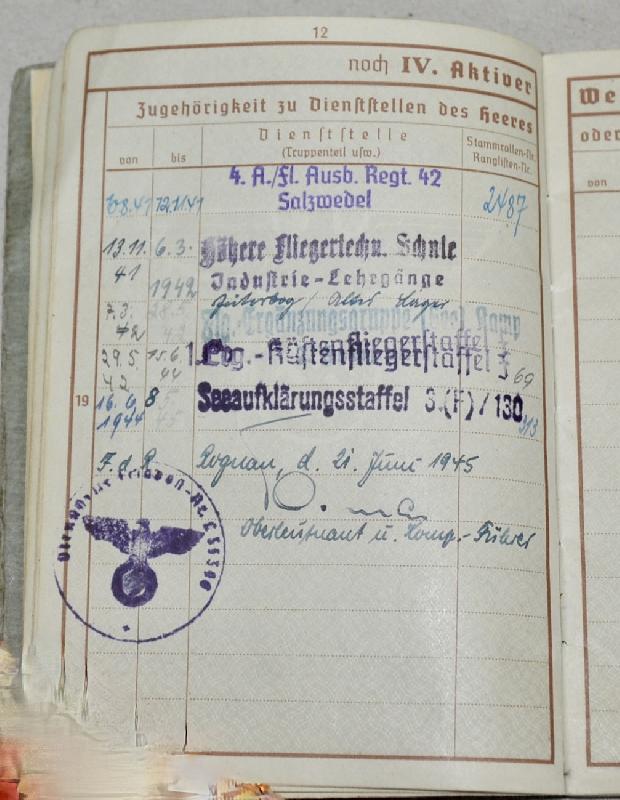 12
noch IV. Aktiver
We
Zugehörigkeit zu Dienststellen des Heeres
oder
von
bis
Dienststelle
(Truppenteil usw.)
Stammrollen-Nr.
Ranglisten-Nr.
von
4. A./Fl. Ausb. Regt. 42
Salzwedel
8.41 12.11.41
2487
13.11. 6.3.
41
1942
Höhere Fliegertechn. Schule
Industrie-Lehrgänge
Altes Lager
7.3.
42
Erg.-Ergänzungsgruppe (See) Kamp
29.5. 15.6.
42 44
1. Küstenfliegerstaffel
69
19
16.6 8
1944 45
Seeaufklärungsstaffel 3.(F)/130
313
F. d. R.
d. 21. Juni 1945
Oberleutnant u. Komp.-Führer